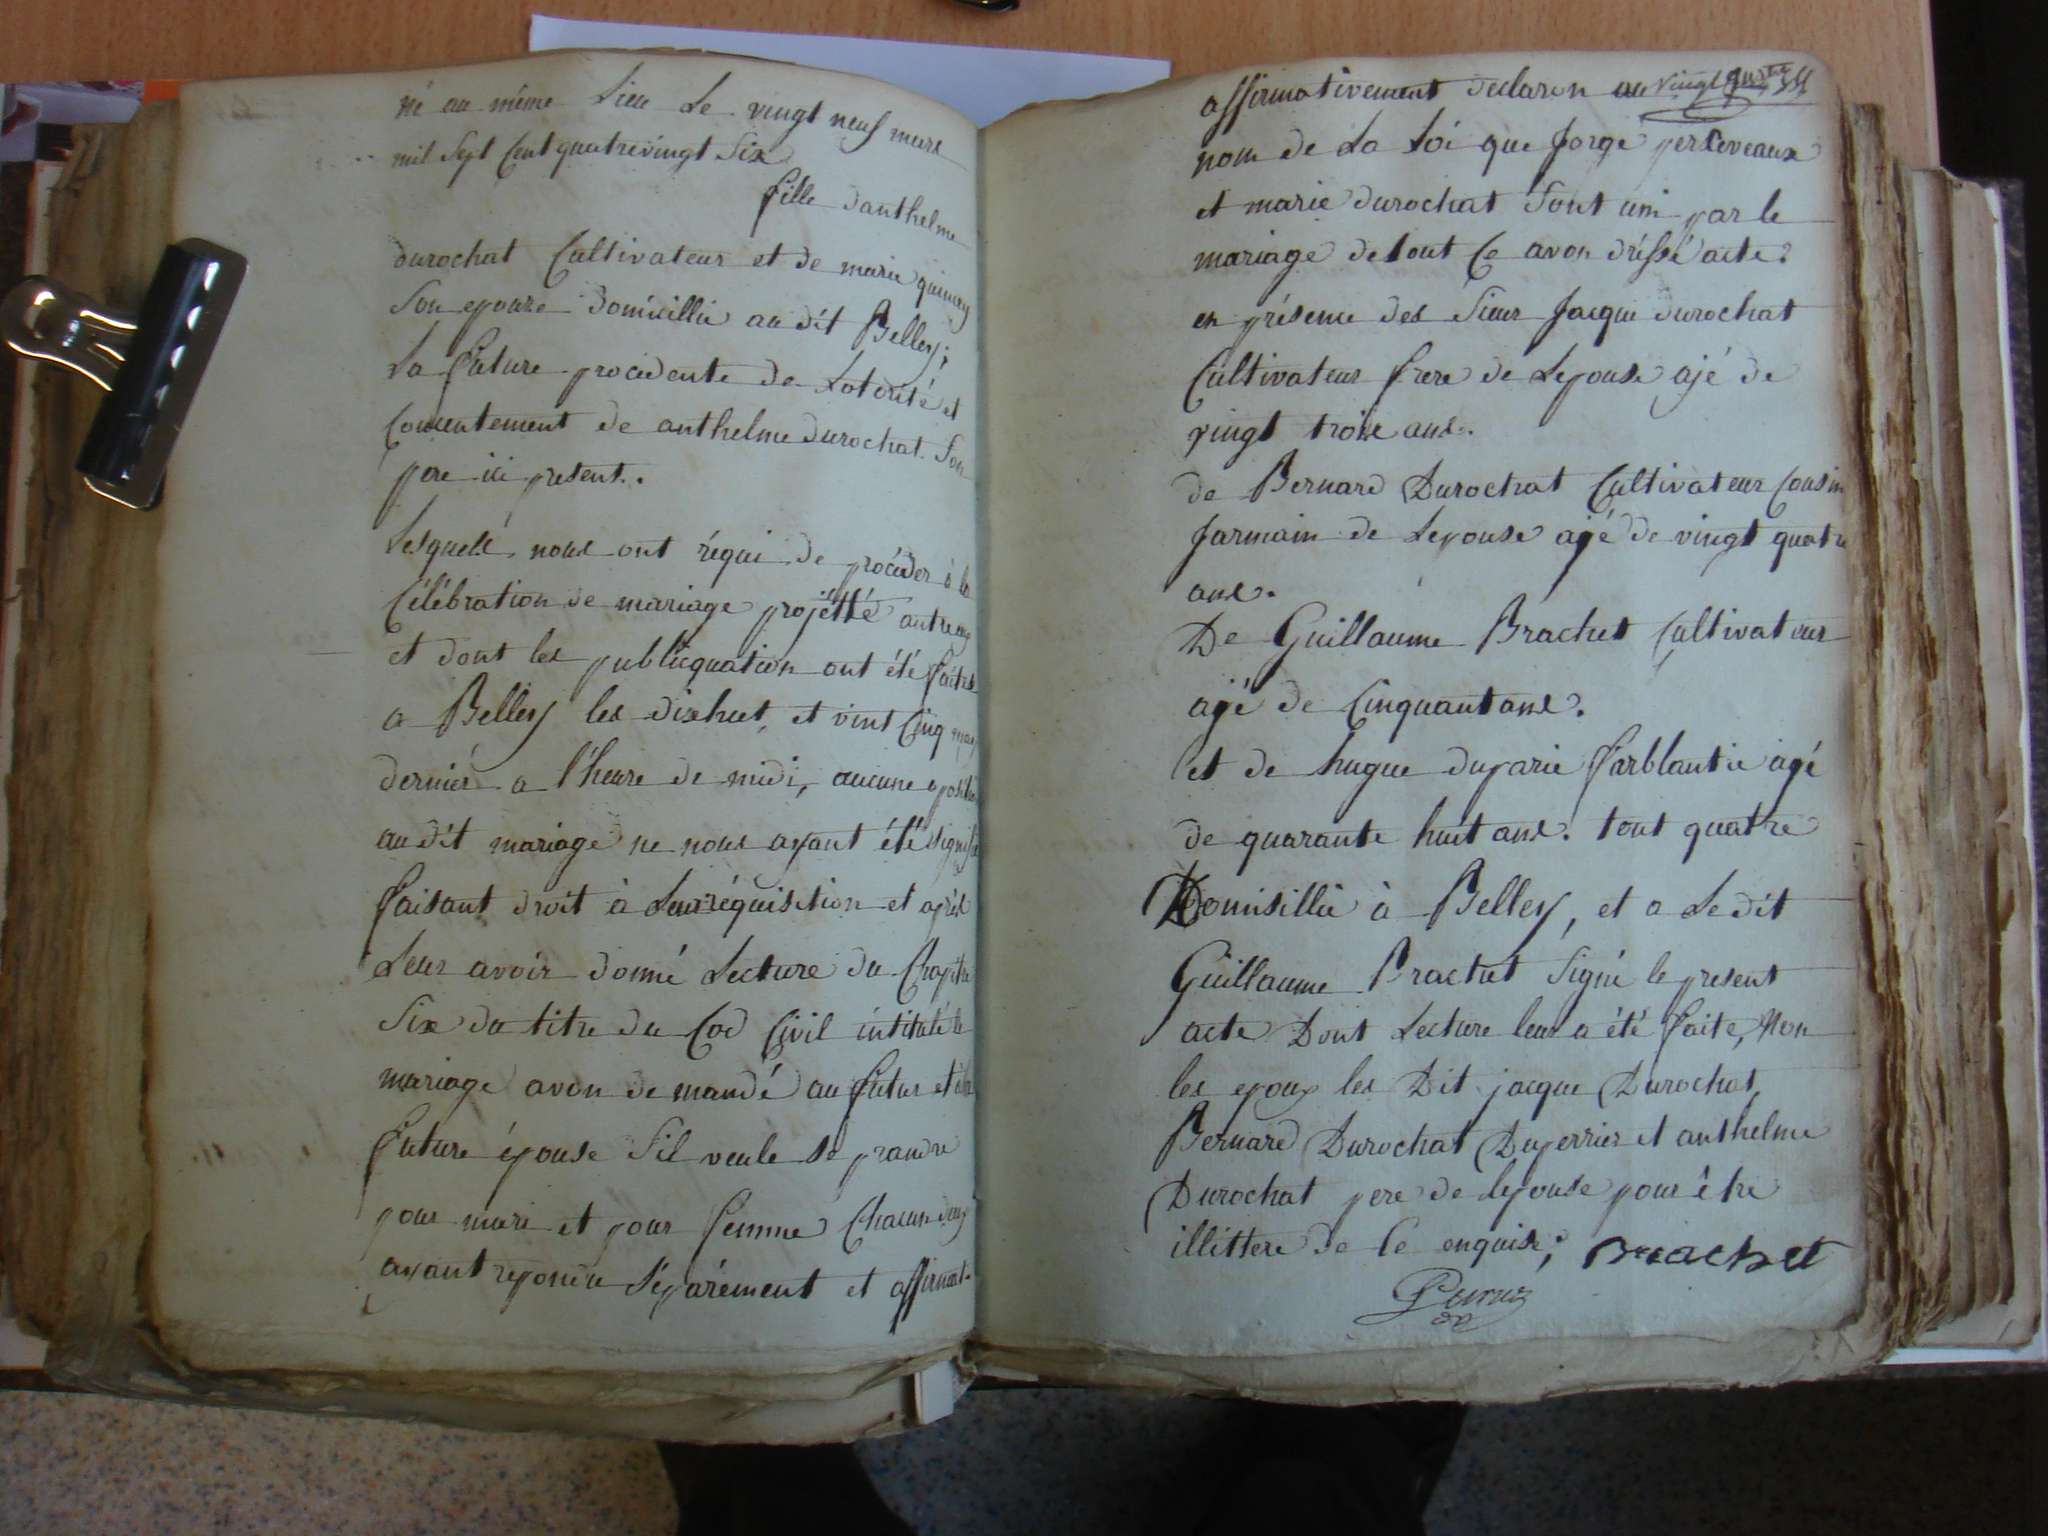 né au même Lieu Le vingt neuf mars
mil Sept Cent quatrevingt Six
fille danthelme
durochat Cultivateur et de marie
Son epouze domicillié au dit Belley;
La future procedente de Lotorité et
Consentement de anthelme durochat Son
pere ici present.
Lesquels nous ont réqui de procéder à la
Célébration de mariage projetté antre eux
et dont les publiquation ont été faites
a Belley les dixhuet, et vint Cinq may
dernier a l'heure de midi, aucune oposition
au dit mariage ne nous ayant été signifié
faisant droit à Leur réquisition et après
Leur avoir donné Lecture du Chapitre
Six du titre du Cod Civil intitulé le
mariage avon demandé au futur et à la
future épouse Sil veule se prandre
pour mari et pour femme Chacun deux
ayant reponeu Séparément et affirmat-
affirmativement declaron au vingt quatre
nom de La Loi que Jorge perceveaux
et marie durochat Sont uni par le
mariage de tout Ce avon dréssé acte.
en présence des Sieur Jacque durochat
Cultivateur frere de Lepouse ajé de
vingt troix ans.
de Bernard Durochat Cultivateur Cousin
Jarmain de Lepouse ajé de vingt quatre
ans.
De Guillaume Brachet Cultivateur
ajé de Cinquant ans.
et de hugue duparié farblantié agé
de quarante huit ans. tout quatre
Domisillié à Belley, et a Le dit
Guillaume Brachet Signé le present
acte Dont Lecture leur a été faite, Non
les epoux les Dit jacque Durochat,
Bernard Durochat Duperrier et anthelme
Durochat pere de lepouse pour être
illittere de Ce enquise; Brachet